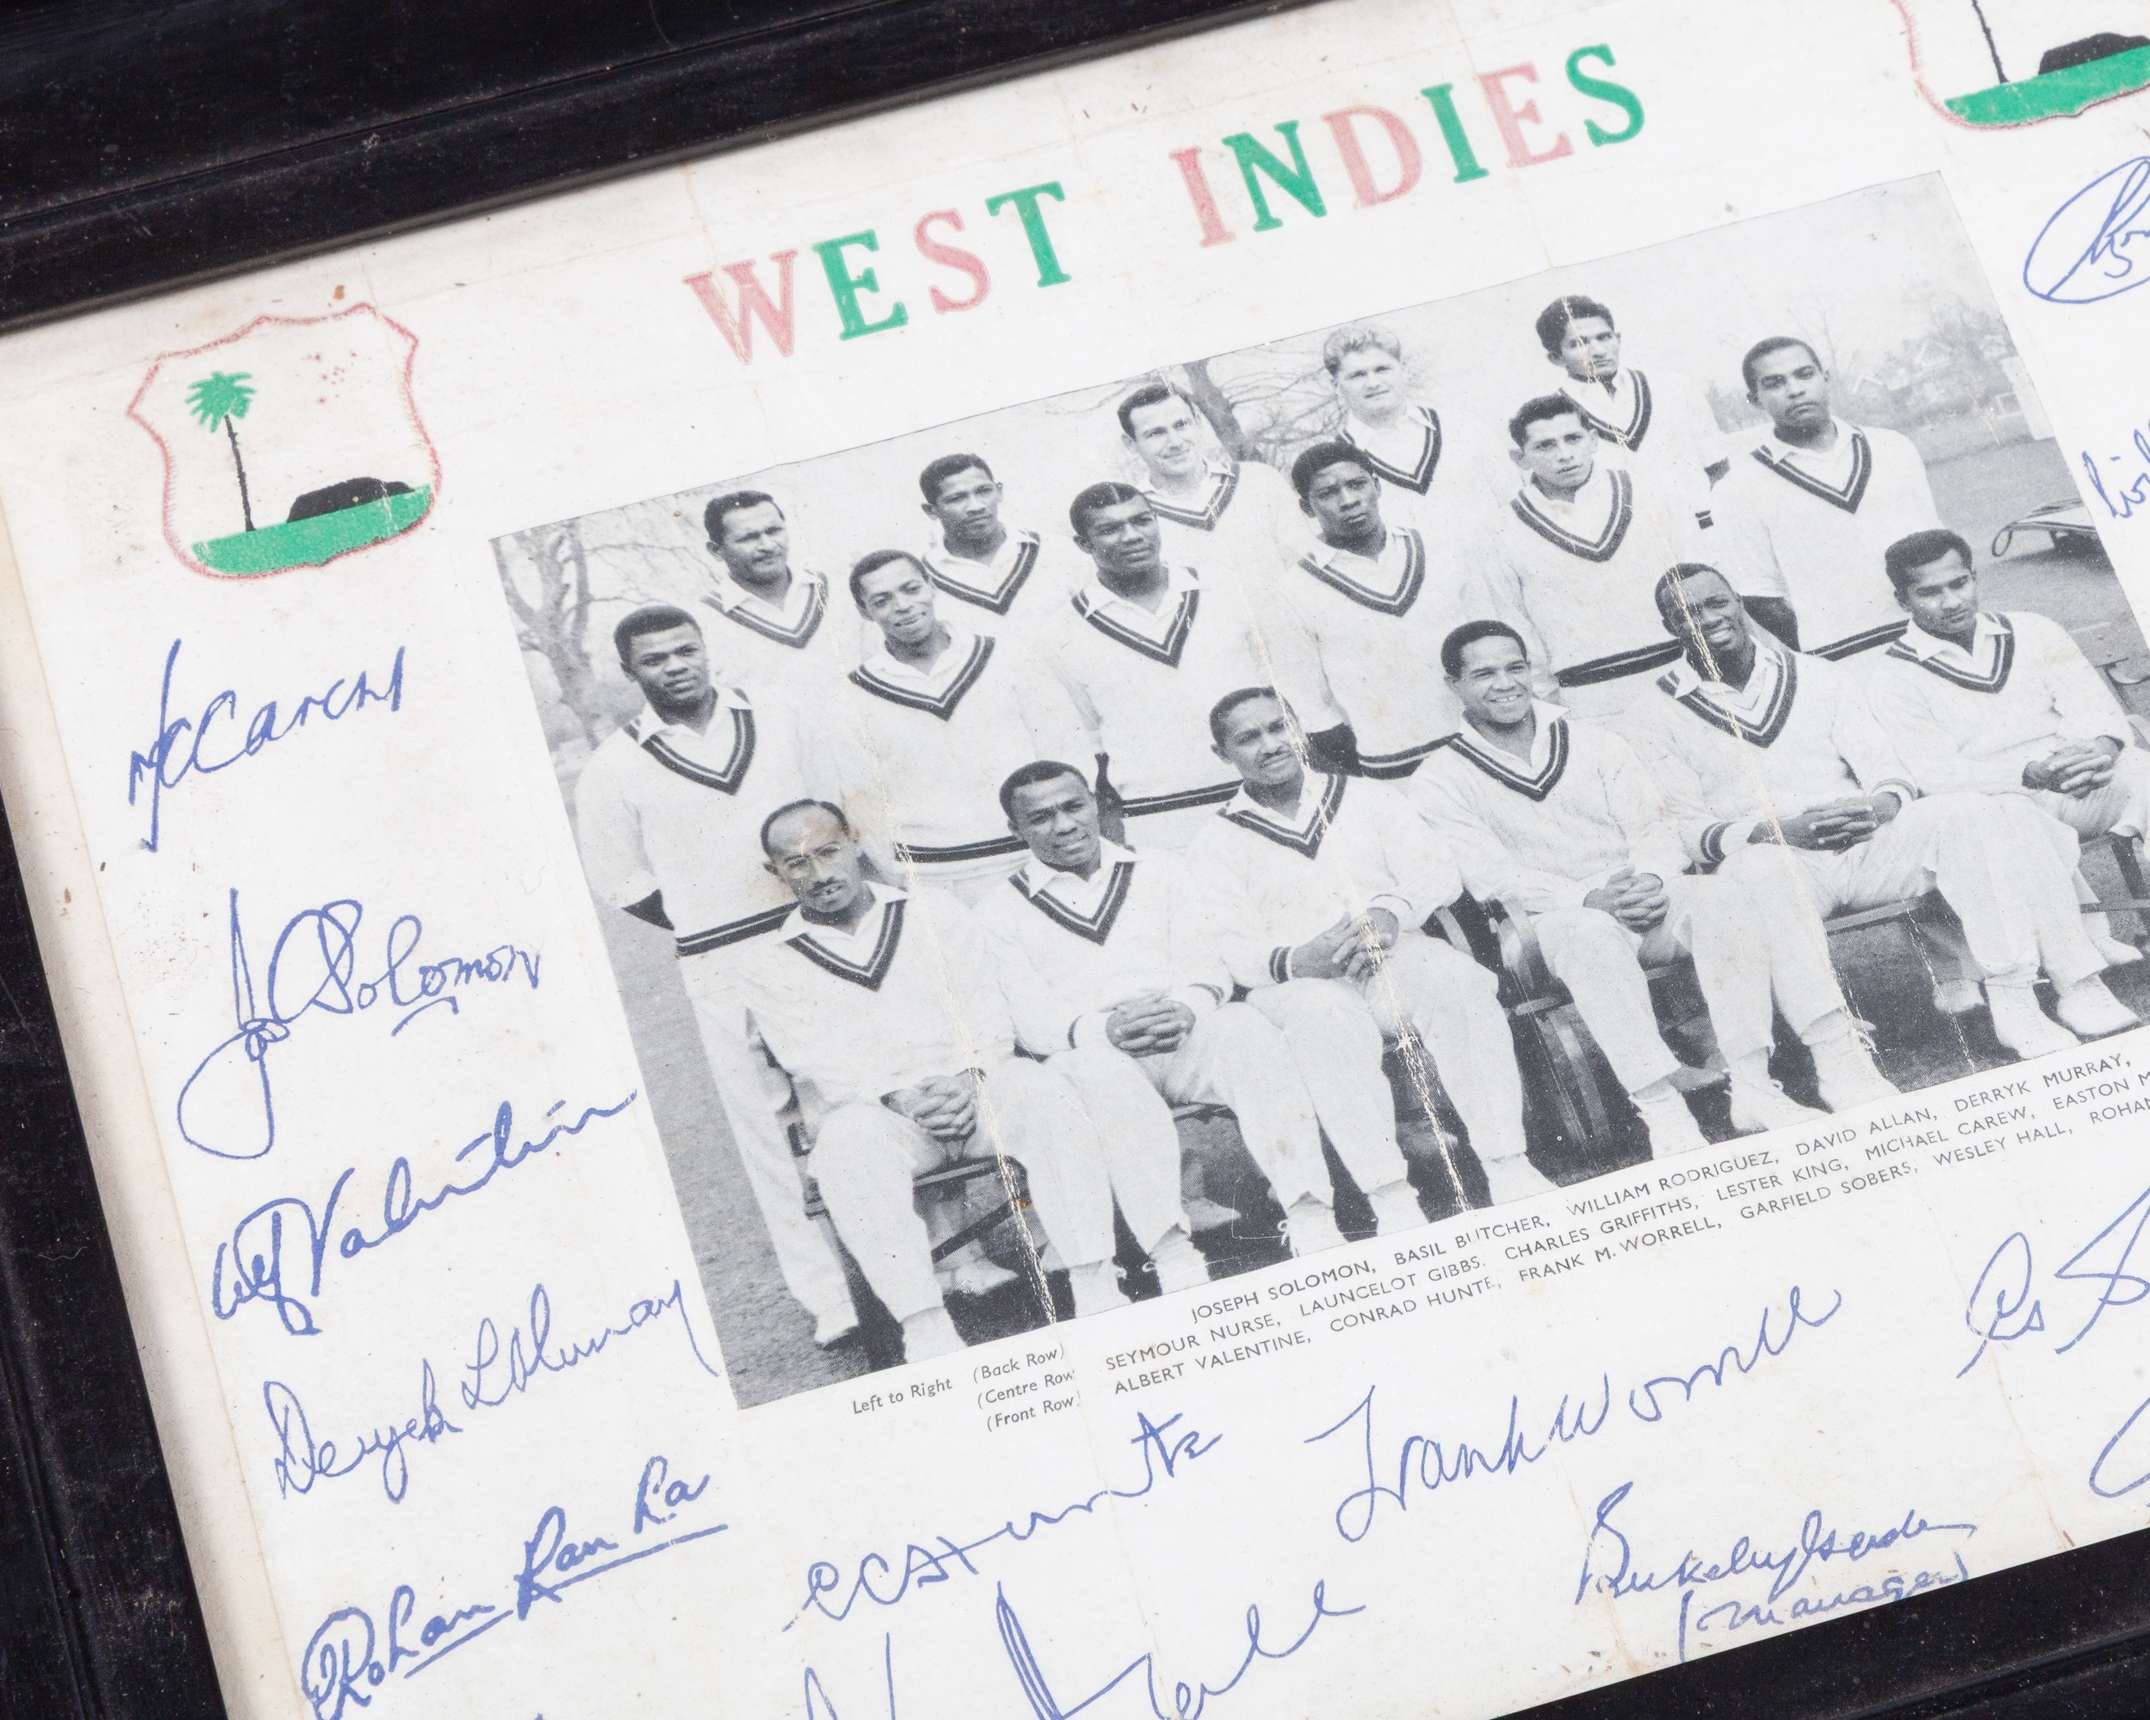 WEST INDIES
McCarew
Jos Solomon
Alf Valentine
Deryck L Murray
Rohan Kanhai
JOSEPH SOLOMON, BASIL BUTCHER, WILLIAM RODRIGUEZ, DAVID ALLAN, DERRYK MURRAY,
SEYMOUR NURSE, LAUNCELOT GIBBS, CHARLES GRIFFITHS, LESTER KING, MICHAEL CAREW, EASTON M
ALBERT VALENTINE, CONRAD HUNTE, FRANK M. WORRELL, GARFIELD SOBERS, WESLEY HALL, ROHAN
Left to Right (Back Row)
(Centre Row
(Front Row)
CC Hunte
Frank Worrell
Berkeley Gaskin
(manager)